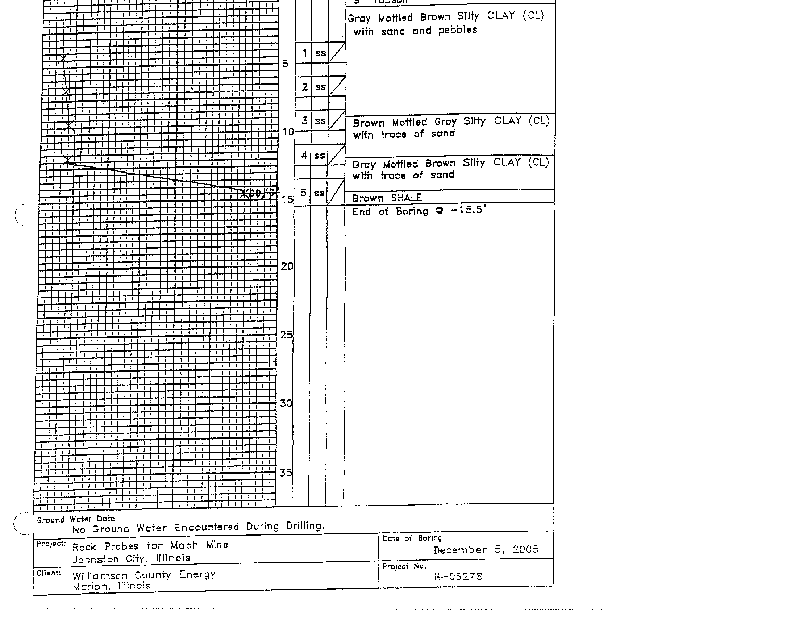 Gray Mottled Brown Silty CLAY (CL)
with sand and pebbles
1 ss
5
2 ss
3 ss
Brown Mottled Gray Silty CLAY (CL)
10
with trace of sand
4 ss
Gray Mottled Brown Silty CLAY (CL)
with trace of sand
5 ss
15
Brown SHALE
End of Boring @ -15.5'
20
25
30
35
Ground Water Data
No Ground Water Encountered During Drilling.
Project: Rock Probes for Mach Mine
Johnston City, Illinois
Date of Boring
December 5, 2005
Client: Williamson County Energy
Marion, Illinois
Project No.